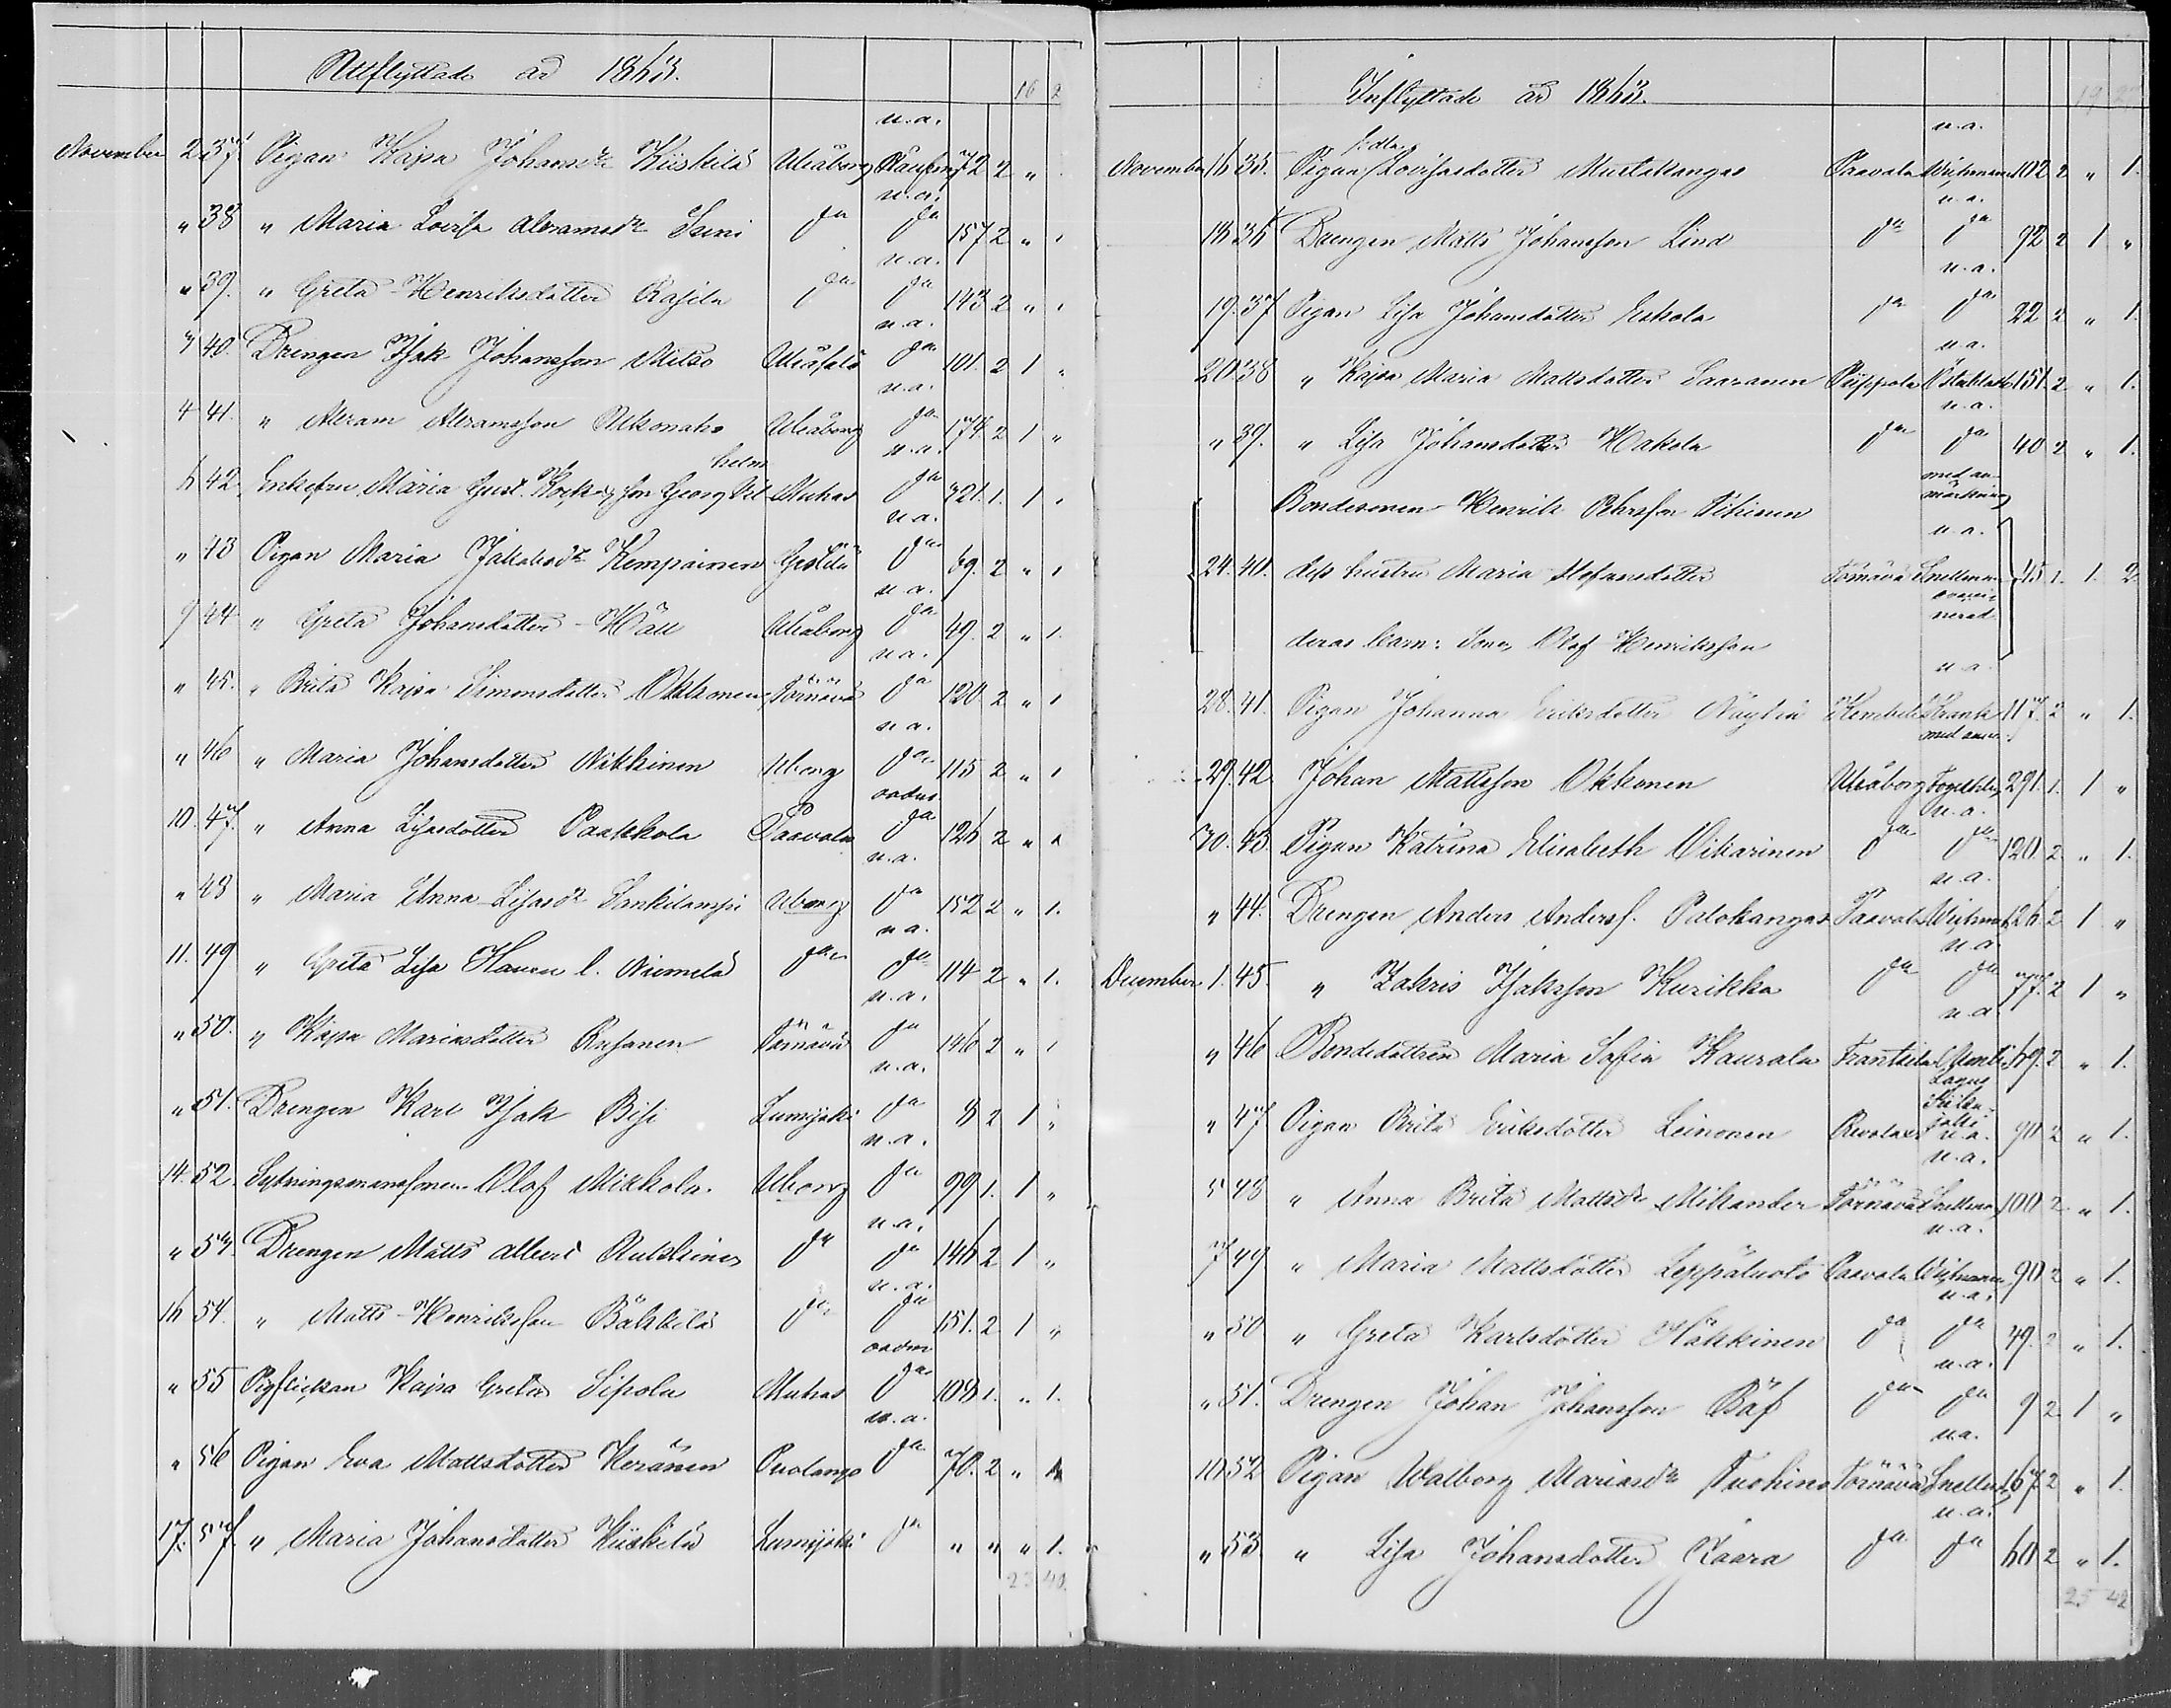 Utflyttade år 1863.
16 2
November 2 37 Pigan Kajsa Johansdr Kiiskilä Uleåborg u.a. 72 2 "
" 38 " Maria Lovisa Abramsdr Seini do u.a. do 157 2 " 1
" 39. " Greta Henriksdotter Rasila do u.a. do 143 2 " 1
" 40. Drengen Isak Johansson Mitso Uleåsalo u.a. do 101. 2 1 "
4 41. " Abram Abramsson Uleåborg u.a. do 174. 2 1 "
6 42. Enkefru Maria Gust. son Georg Vilhelm Muhos u.a. do 721. 1. 1
" 43 Pigan Maria Jakobsdr Kempainen u.a. do 69. 2 " 1
9 44 " Greta Johansdotter Häll Uleåborg u.a. do 49. 2 " 1.
" 45. " Brita Kajsa Simonsdotter Okkonen Törnävä u.a. do 120 2 " 1
" 46 " Maria Johansdotter Nikkinen Uborg u.a. do 115 2 " 1
10. 47. " Anna Lisasdotter Paakkola Paavola oadm. do 126 2 " 1
" 48 " Maria Anna Lisasdr Lankilampi Uborg u.a. do 152 2 " 1.
11. 49 " Greta Lisa Haven l. Niemelä do u.a. do 114 2 " 1.
" 50. " Kajsa Mariasdotter Rasanen Törnävä u.a. do 146 2 " 1
" 51. Drengen Karl Isak Bisi Lumijoki u.a. do 8 2 1 "
14. 52. Sytningsmanssonen Olof Mikkola Uborg u.a. do 99 1. 1 "
" 53. Drengen Matts Albert Rukkinen do u.a. do 146 2 1 "
16 54. " Matts Henriksson Bäkkilä do u.a. do 151. 2 1 "
" 55 Pigflickan Kajsa Greta Sipola Muhos oadm do 108 1. " 1.
" 56 Pigan Eva Mattsdotter Keränen Puolango u.a. do 70. 2 " 1
17. 57. " Maria Johansdotter Kiiskilä Lumijoki do " " " 1.
23 40.
Inflyttade år 1863.
19 27
November 16 35. Pigan Lovisasdotter Mustakangas Paavola u.a. Wichmann 102 2 " 1.
18 36 Drengen Matts Johansson Lind do u.a. do 92 2 1 "
19. 37 Pigan Lisa Johansdotter Eskola do u.a. do 22 2 " 1.
20. 38 " Kajsa Maria Mattsdotter Saaranen Piippola u.a. 151. 2 " 1.
" 39. " Lisa Johansdotter Hakola do u.a. do 40 2 " 1.
Bondesonen Henrik Pehrsson Pikinen med anmärkning
24. 40. dess hustru Maria Stefansdotter Törnävä u.a. Snellman 45 1. 1. 2
deras barn: Son Olof Henriksson ovaccinerad
28. 41. Pigan Johanna Eriksdotter Näyliä Kembele u.a. 117. 2 " 1.
29. 42 Johan Mattsson Okkonen Uleåborg med anm. 291. 1. 1 "
30. 43. Pigan Katrina Elisabeth Vikarinen do u.a. do 120. 2 " 1.
" 44. Drengen Anders Anderss. Palokangas Paavola u.a. 126. 2 1 "
December 1. 45. " Zakris Isaksson Kurikka do u.a. do 77. 2 1 "
" 46 Bondedottren Maria Sofia Kaurala Frantsila u.a. 69. 2 " 1.
" 47 Pigan Brita Eriksdotter Leinonen Revolax u.a. 90 2 " 1.
5 48 " Anna Brita Mattsdr Mikander Törnävä u.a. Snellman 100 2 " 1.
7 49 " Maria Mattsdotter Leppäluoto Paavola u.a. Wichmann 90 2 " 1.
" 50 " Greta Karlsdotter Häkkinen do u.a. do 49. 2 " 1.
" 51. Drengen Johan Johansson Bäf do u.a. do 9 2 1 "
10 52 Pigan Walborg Mariasdr Tuohino Törnävä u.a. Snellman 167 2 " 1.
" 53 " Lisa Johansdotter Kaara do u.a. do 60 2 " 1.
25 42